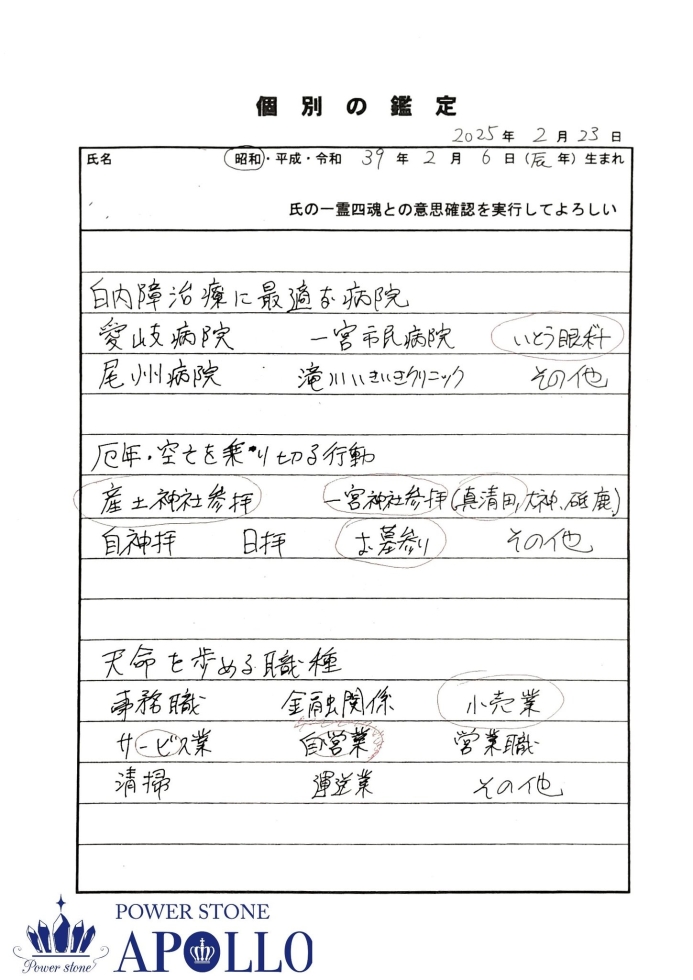 個別の鑑定
2025年 2月 23日
氏名 昭和・平成・令和 39年 2月 6日(辰年)生まれ
氏の一霊四魂との意思確認を実行してよろしい
白内障治療に最適な病院
愛岐病院 一宮市民病院 いとう眼科
尾州病院 滝川いきいきクリニック その他
厄年・空亡を乗り切る行動
産土神社参拝 一宮神社参拝(真清田,大神、砥鹿)
自神拝 日拝 お墓参り その他
天命を歩める職種
事務職 金融関係 小売業
サービス業 自営業 営業職
清掃 運送業 その他
POWER STONE
Power stone APOLLO